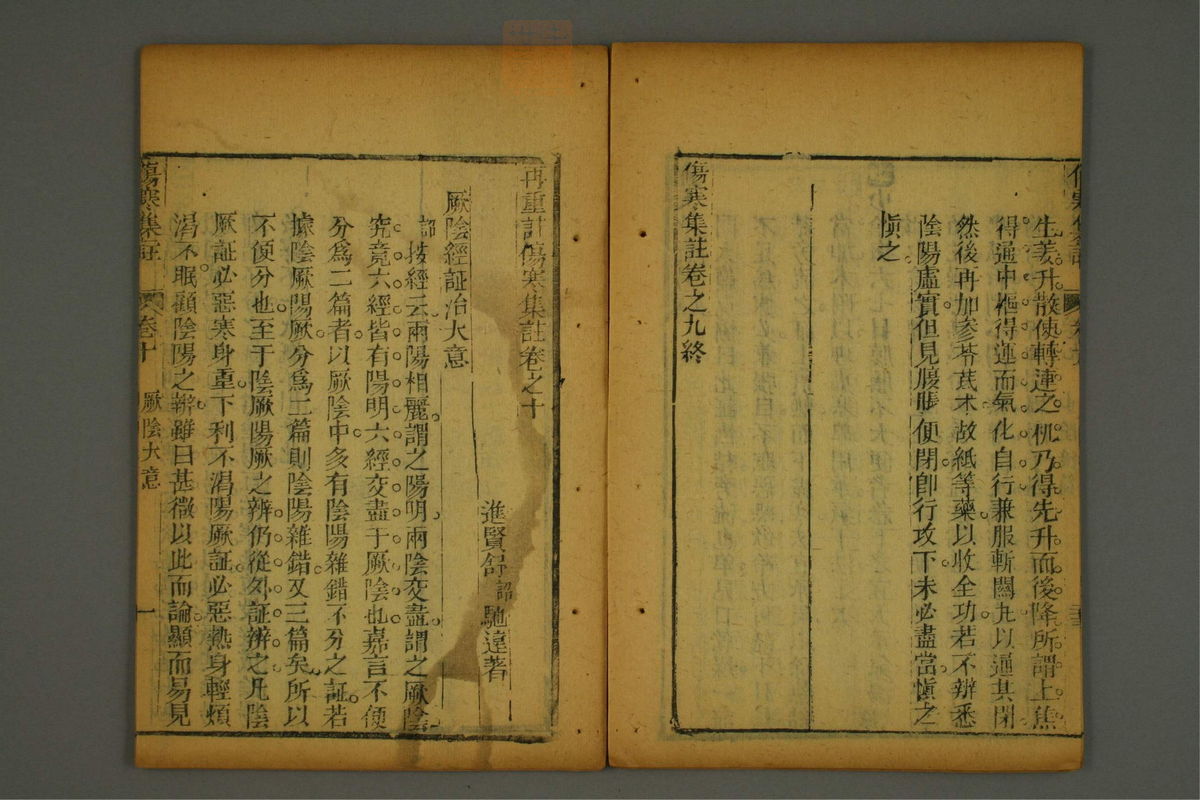 生姜升散使轉運之機乃得先升而後降所謂上焦
得通中樞得運而氣化自行兼服斬關丸以通其閉
然後再加參苓芪朮故紙等藥以收全功若不辨悉
陰陽虛實但見腹脹便閉卽行攻下未必盡當愼之
愼之
傷寒集註卷之九終
再重訂傷寒集註卷之十
進賢舒詔馳遠著
厥陰經証治大意
詔按經云兩陽相麗謂之陽明兩陰交盡謂之厥陰
究竟六經皆有陽明六經交盡于厥陰也嘉言不便
分爲二篇者以厥陰中多有陰陽雜錯不分之証若
據陰厥陽厥分爲二篇則陰陽雜錯又三篇矣所以
不便分也至于陰厥陽厥之辨仍從外証辨之凡陰
厥証必惡寒身重下利不渴陽厥証必惡熱身輕煩
渴不眠顧陰陽之辨雖曰甚微以此而論顯而易見
傷寒集註 卷十 厥陰大意 一